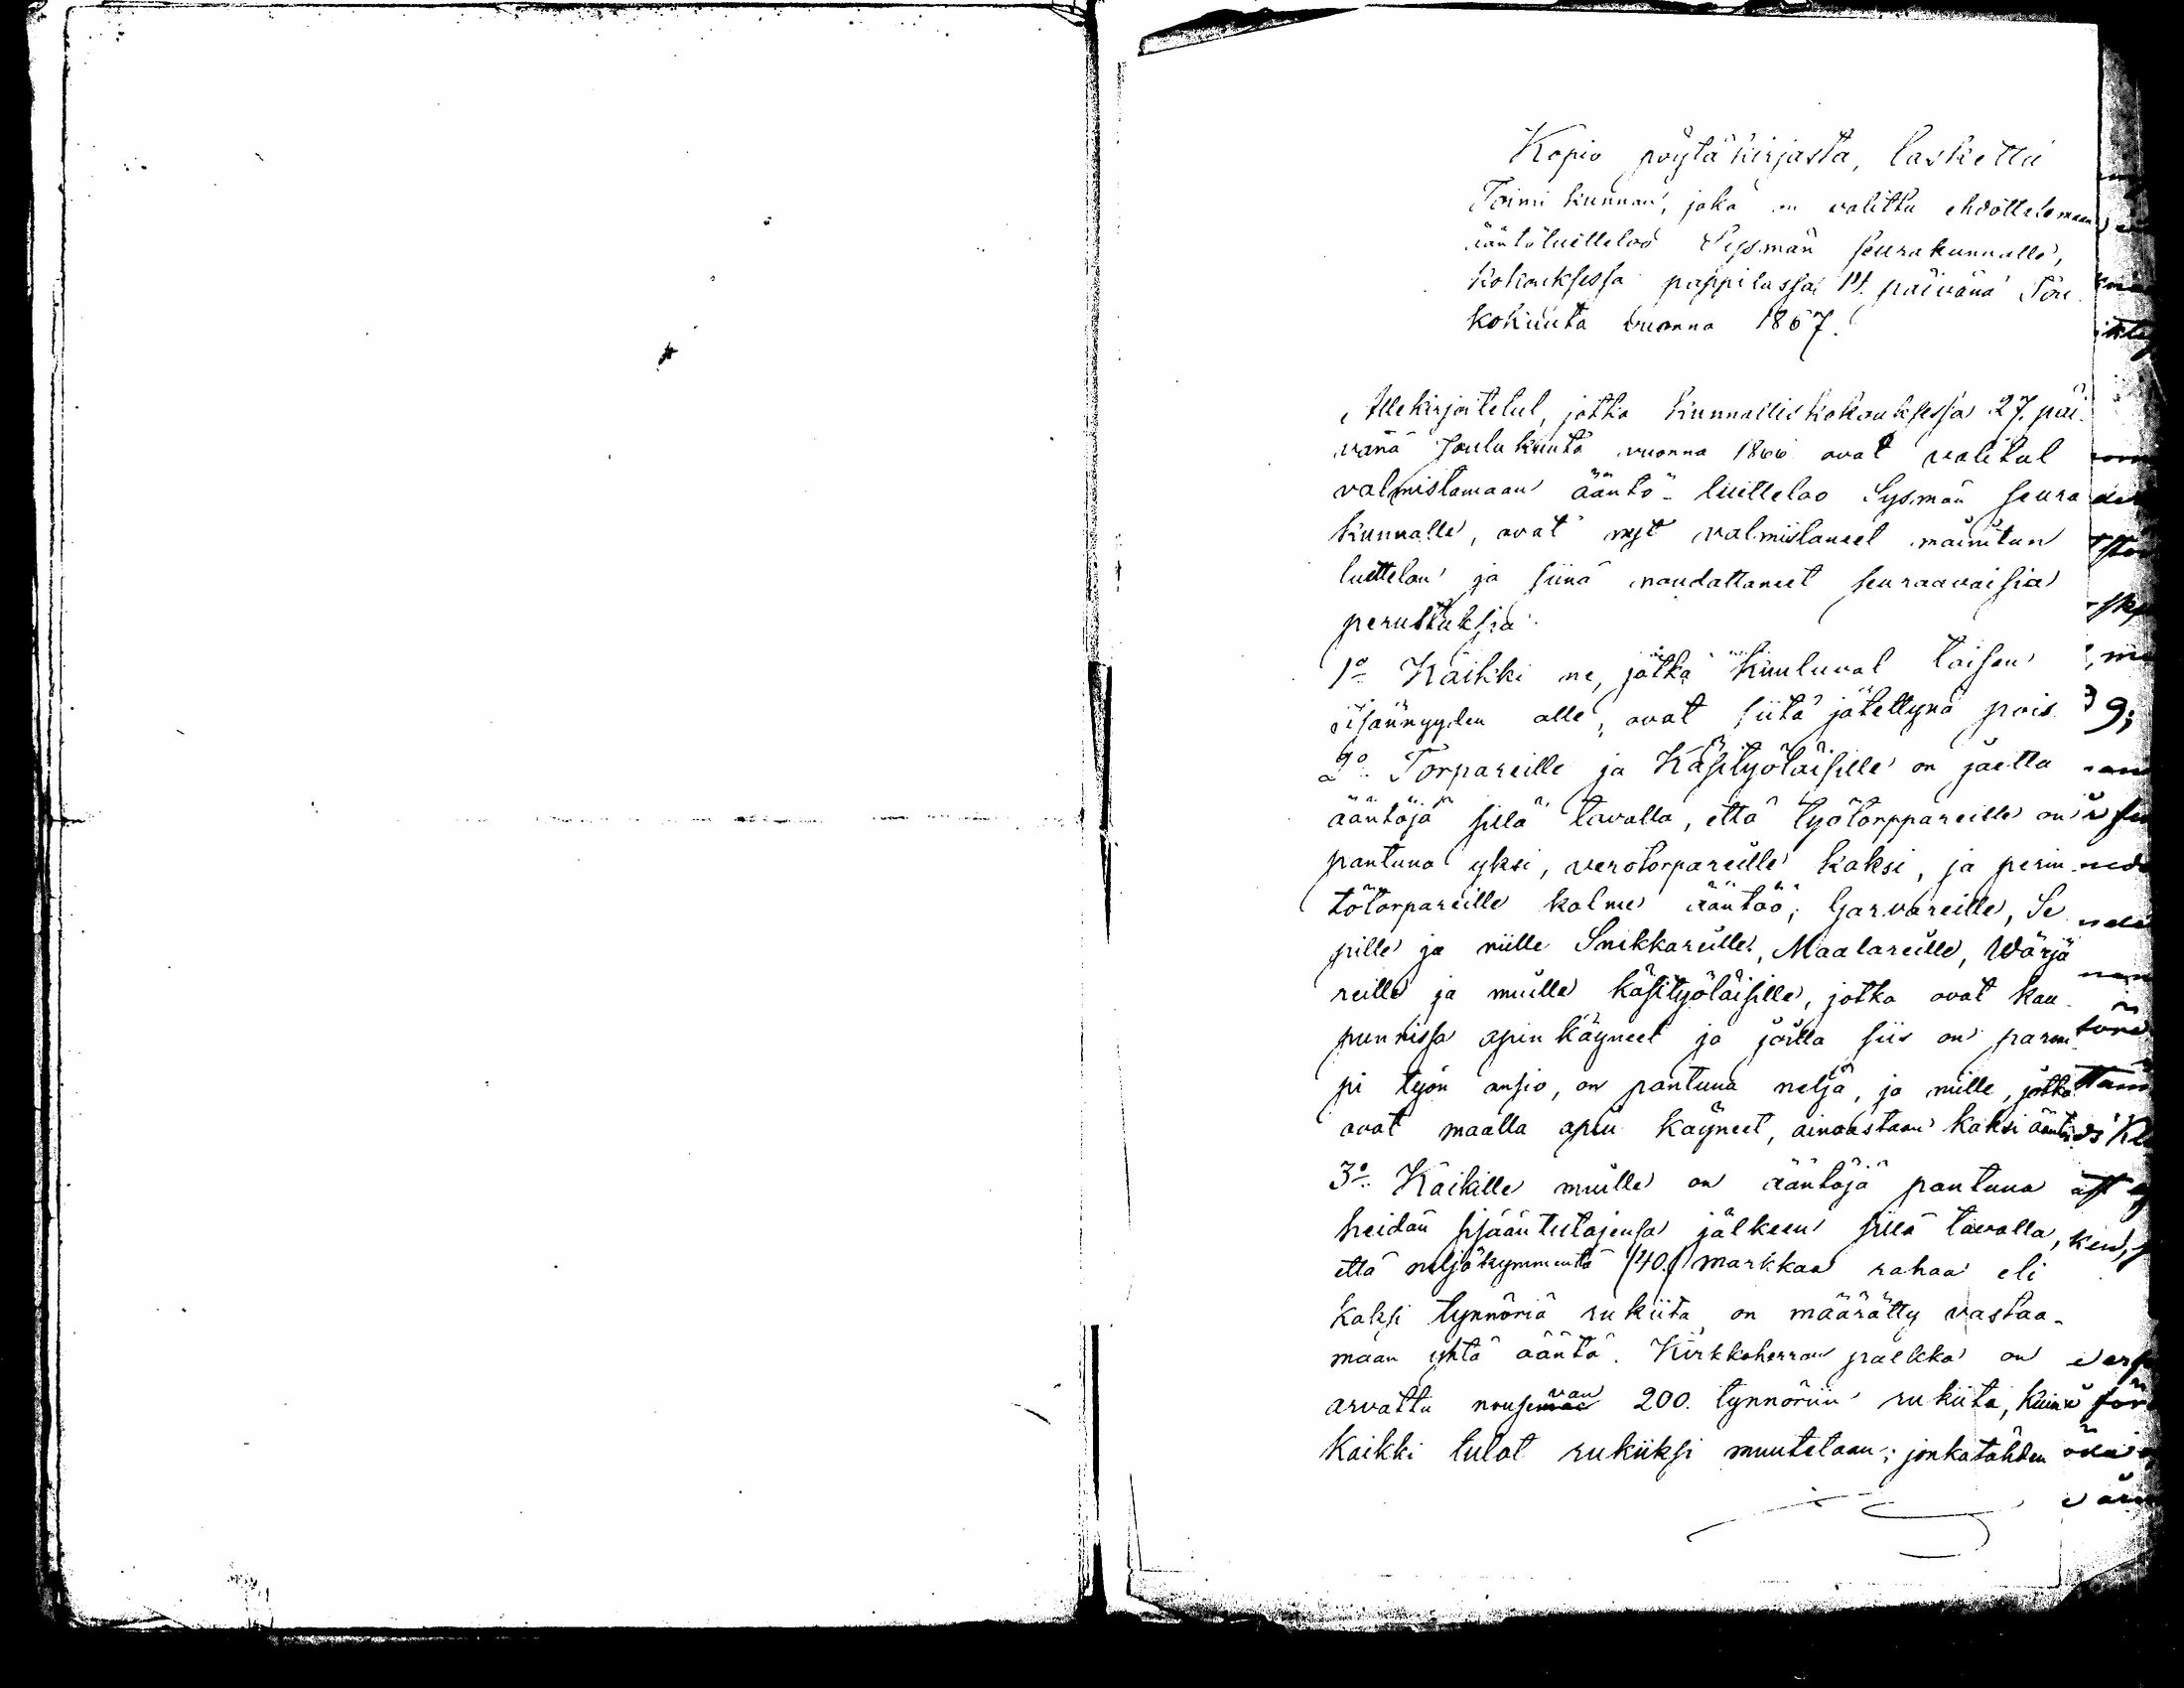 Kopio pöytäkirjasta, laskettu
Toimikunnan, joka on valittu ehdottelemaan
ääntöluetteloo Sysmän seurakunnalle,
kokouksessa pappilassa 14. päivänä Tou
kokuuta vuonna 1867.
Allekirjoitetut, jotka Kunnalliskokouksessa 27. päi-
vänä Joulukuuta vuonna 1866 ovat valitut
valmistamaan ääntö-luetteloo Sysmän seura
kunnalle, ovat nyt valmistaneet mainitun
luettelon ja siinä noudattaneet seuraavaisia
perustuksia.
1o Kaikki ne, jotka kuuluvat toisen
isännyyden alle, ovat siitä jätettynä pois
2o Torpareille ja Käsityöläisille on jaettu
ääntöjä sillä tavalla, että työtorppareille on
pantuna yksi, verotorpareille kaksi, ja perin
tötorpareille kolme ääntöö; Garvareille, Se
pille ja niille Snikkareille, Maalareille, Wärjä
reille ja muille käsityöläisille, jotka ovat kau
punnissa opin käyneet ja joilla siis on parem
pi työn ansio, on pantuna neljä, ja niille, jotka
ovat maalla opin käyneet, ainoastaan kaksi ääntöö
3o Kaikille muille on ääntöjä pantuna
heidän sisääntulojensa jälkeen sillä tavalla,
että neljäkymmentä /40./ markkaa rahaa eli
kaksi tynnöriä rukiita on määrätty vastaa-
maan yhtä ääntä. Kirkkoherran palkka on
arvattu nousevan 200. tynnöriin rukiita, kuin
kaikki tulot rukiiksi muutetaan; jonkatähden